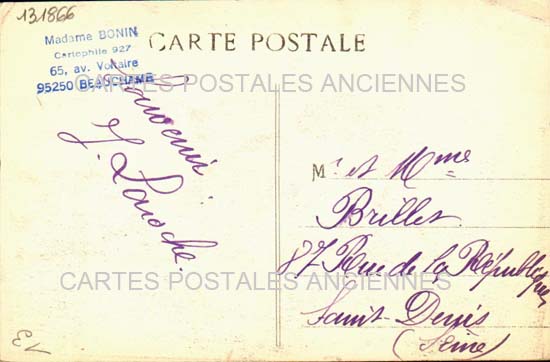 131866
Madame BONIN
Cartophile 927
65, av. Voltaire
95250 BEAUCHAMP
CARTE POSTALE
CARTES POSTALES ANCIENNES
Souvenir
J. Laroche.
Mr et Mme
Brillet
87 Rue de la République
Saint-Denis
(Seine)
CARTES POSTALES ANCIENNES